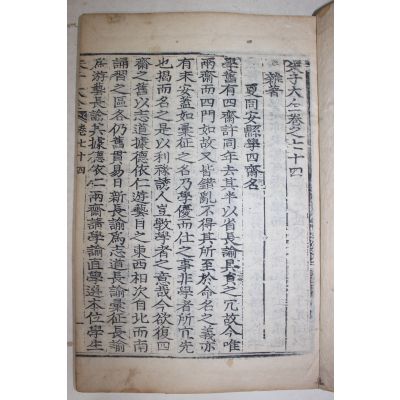 朱子大全卷之七十四
雜著
更同安縣學四齋名
學舊有四齋許同年去其半以省長諭員之冗故今唯
兩齋而四門如故又皆錯亂不得其所至於命名之義亦
有未安蓋如彙征之名乃學優而仕之事非學者所宜先
也揭而名之是以利祿誘人豈敎學者之意哉今欲復四
齋之舊以志道據德依仁游藝目之東西相次自北而南
誦習之區各仍舊貫易日新長諭爲志道長諭彙征長諭
爲游藝長諭其據德依仁兩齋講學諭直學選本位學生
朱子大全 卷七十四